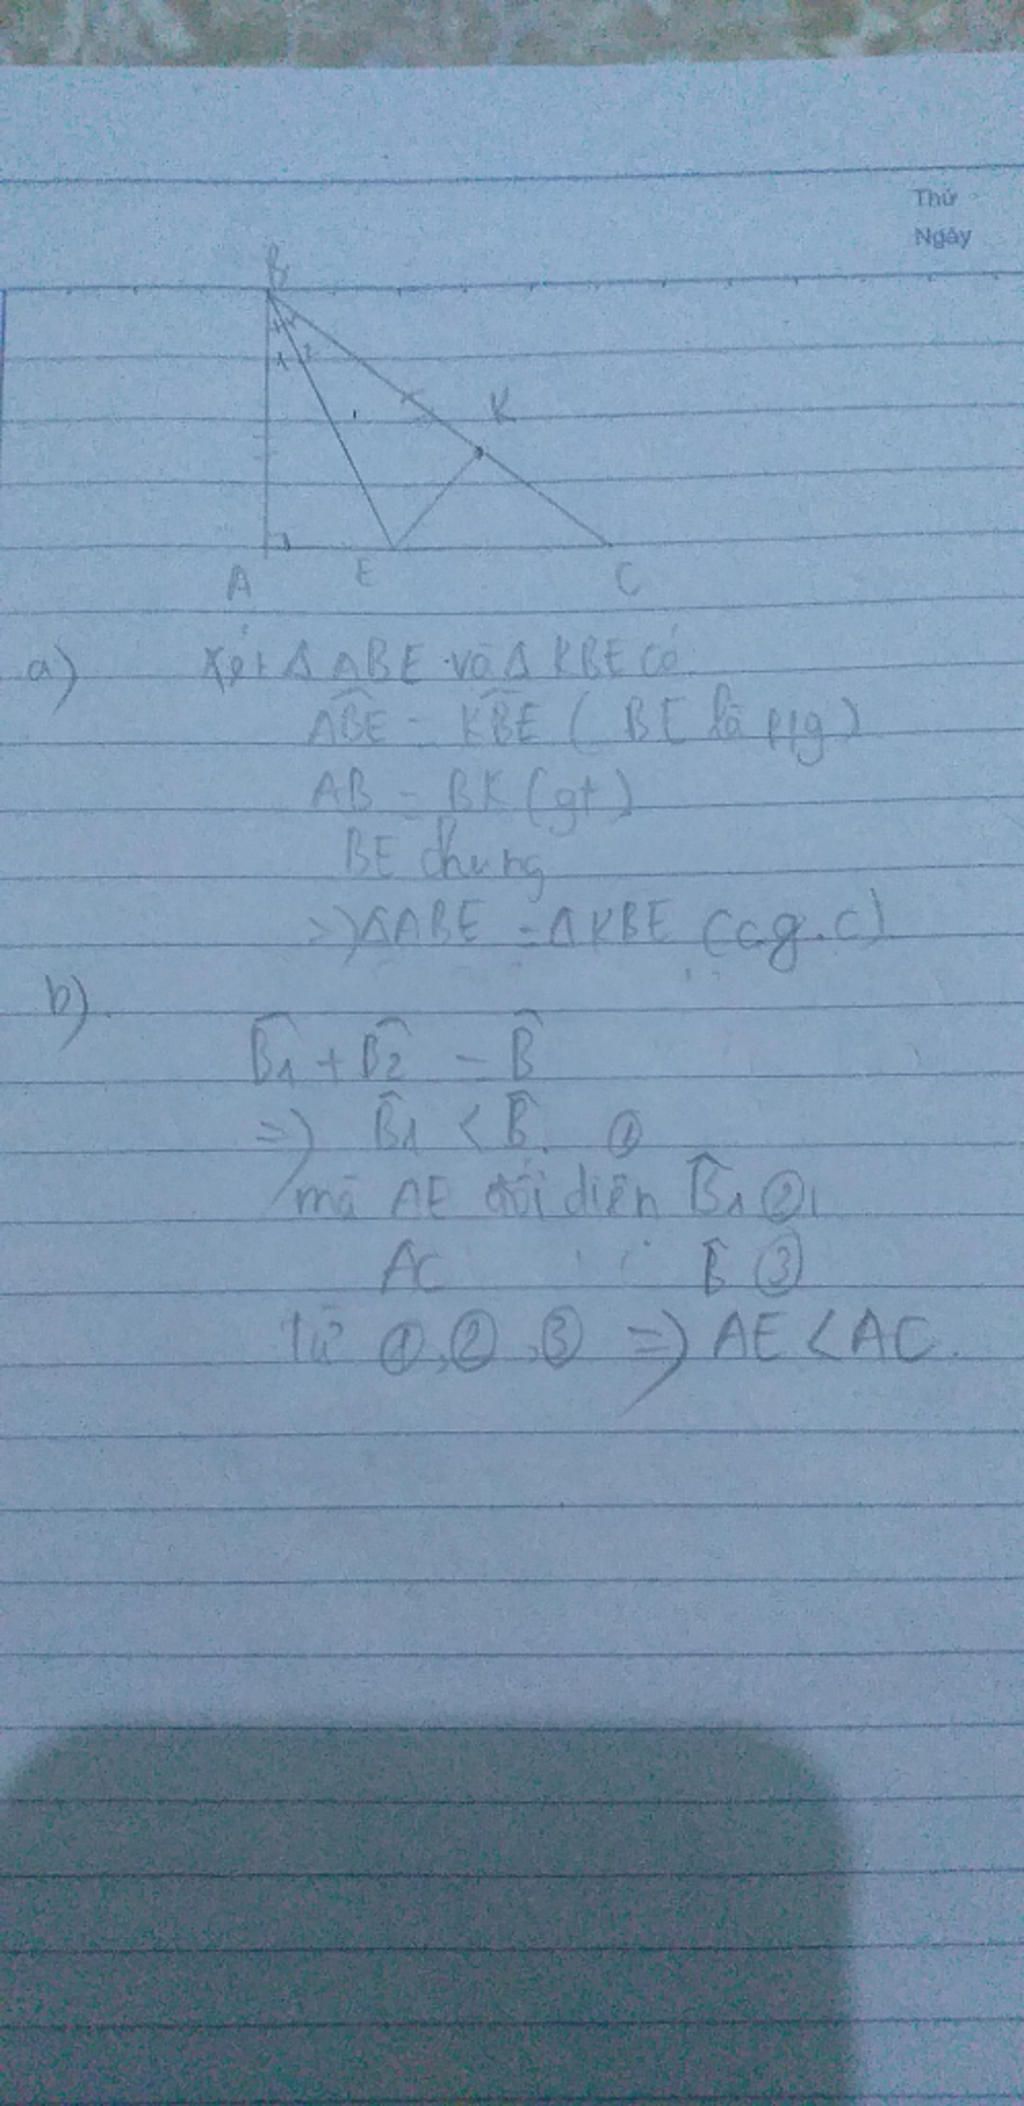 Thứ
Ngày
B
1 2
K
A E C
a) Xét Δ ABE và Δ KBE có
ABE = KBE ( BE là p/g )
AB = BK (gt)
BE chung
=> ΔABE = ΔKBE (c.g.c)
b)
B1 + B2 = B
=> B1 < B. ①
mà AE đối diện B1 ②
AC '' B ③
từ ①, ②, ③ => AE < AC.